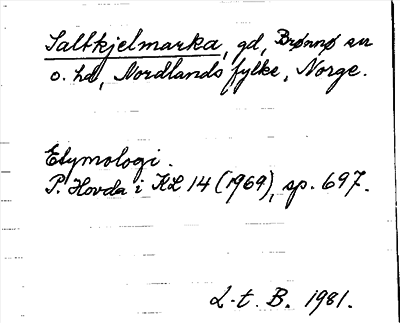 Saltkjelmarka, gd, Brønnø sn
o. hd, Nordlands fylke, Norge.
Etymologi.
P. Hovda i KL 14 (1969), sp. 697.
L-t. B. 1981.